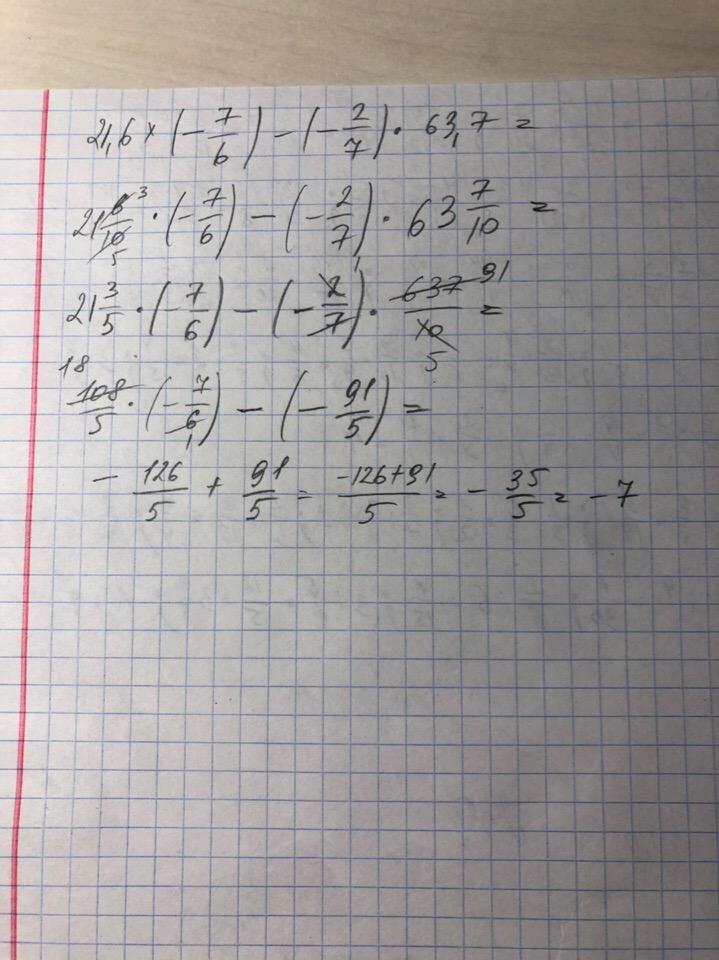 21,6 × (-7/6) - (-2/7) · 63,7 =
21 6/10 3 5 · (-7/6) - (-2/7) · 63 7/10 =
21 3/5 · (-7/6) - (-2/7) 1 · 637/10 91 5 =
18 108/5 · (-7/6) 1 - (-91/5) =
- 126/5 + 91/5 = -126+91/5 = - 35/5 = -7